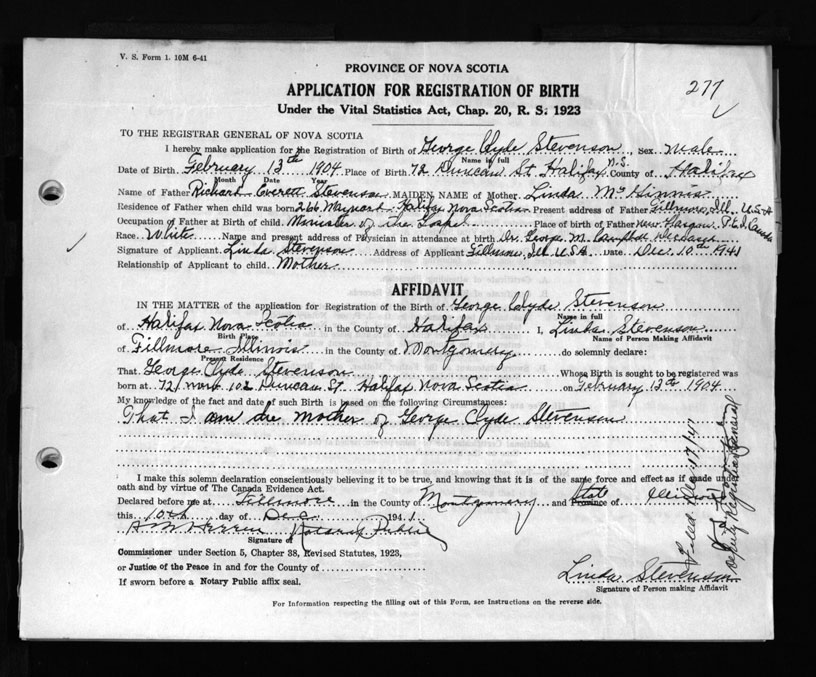 V. S. Form 1. 10M 6-41
277
PROVINCE OF NOVA SCOTIA
APPLICATION FOR REGISTRATION OF BIRTH
Under the Vital Statistics Act, Chap. 20, R. S. 1923
TO THE REGISTRAR GENERAL OF NOVA SCOTIA
I hereby make application for the Registration of Birth of George Clyde Stevenson, Sex male
Name in full
Date of Birth February 13th 1904 Place of Birth 72 Duncan St. Halifax N.S. County of Halifax
Month Date Year
Name of Father Richard Everett Stevenson MAIDEN NAME of Mother Linda McGinnis
Residence of Father when child was born 266 Maynard Halifax Nova Scotia Present address of Father Fillmore, Ill. U.S.A
Occupation of Father at Birth of child Minister of the Gospel Place of birth of Father New Glasgow P.E.I. Canada
Race White Name and present address of Physician in attendance at birth Dr. George M. Campbell
Signature of Applicant Linda Stevenson Address of Applicant Fillmore Ill U.S.A Date Dec. 10th 1941
Relationship of Applicant to child Mother
AFFIDAVIT
IN THE MATTER of the application for Registration of the Birth of George Clyde Stevenson
Name in full
of Halifax Nova Scotia in the County of Halifax I, Linda Stevenson
Birth Place Name of Person Making Affidavit
of Fillmore Illinois in the County of Montgomery do solemnly declare:
Present Residence
That George Clyde Stevenson Whose Birth is sought to be registered was
born at 72, now 102 Duncan St. Halifax Nova Scotia on February 13th 1904
My knowledge of the fact and date of such Birth is based on the following Circumstances:
That I am the mother of George Clyde Stevenson
I make this solemn declaration conscientiously believing it to be true, and knowing that it is of the same force and effect as if made under
oath and by virtue of The Canada Evidence Act.
Declared before me at Fillmore in the County of Montgomery and State Province of Illinois
this 10th day of Dec. 1941
Notary Public
Signature of
Commissioner under Section 5, Chapter 38, Revised Statutes, 1923,
or Justice of the Peace in and for the County of
If sworn before a Notary Public affix seal.
Linda Stevenson
Signature of Person making Affidavit
For Information respecting the filling out of this Form, see Instructions on the reverse side.
Filed Dec 17/41
Deputy Registrar General